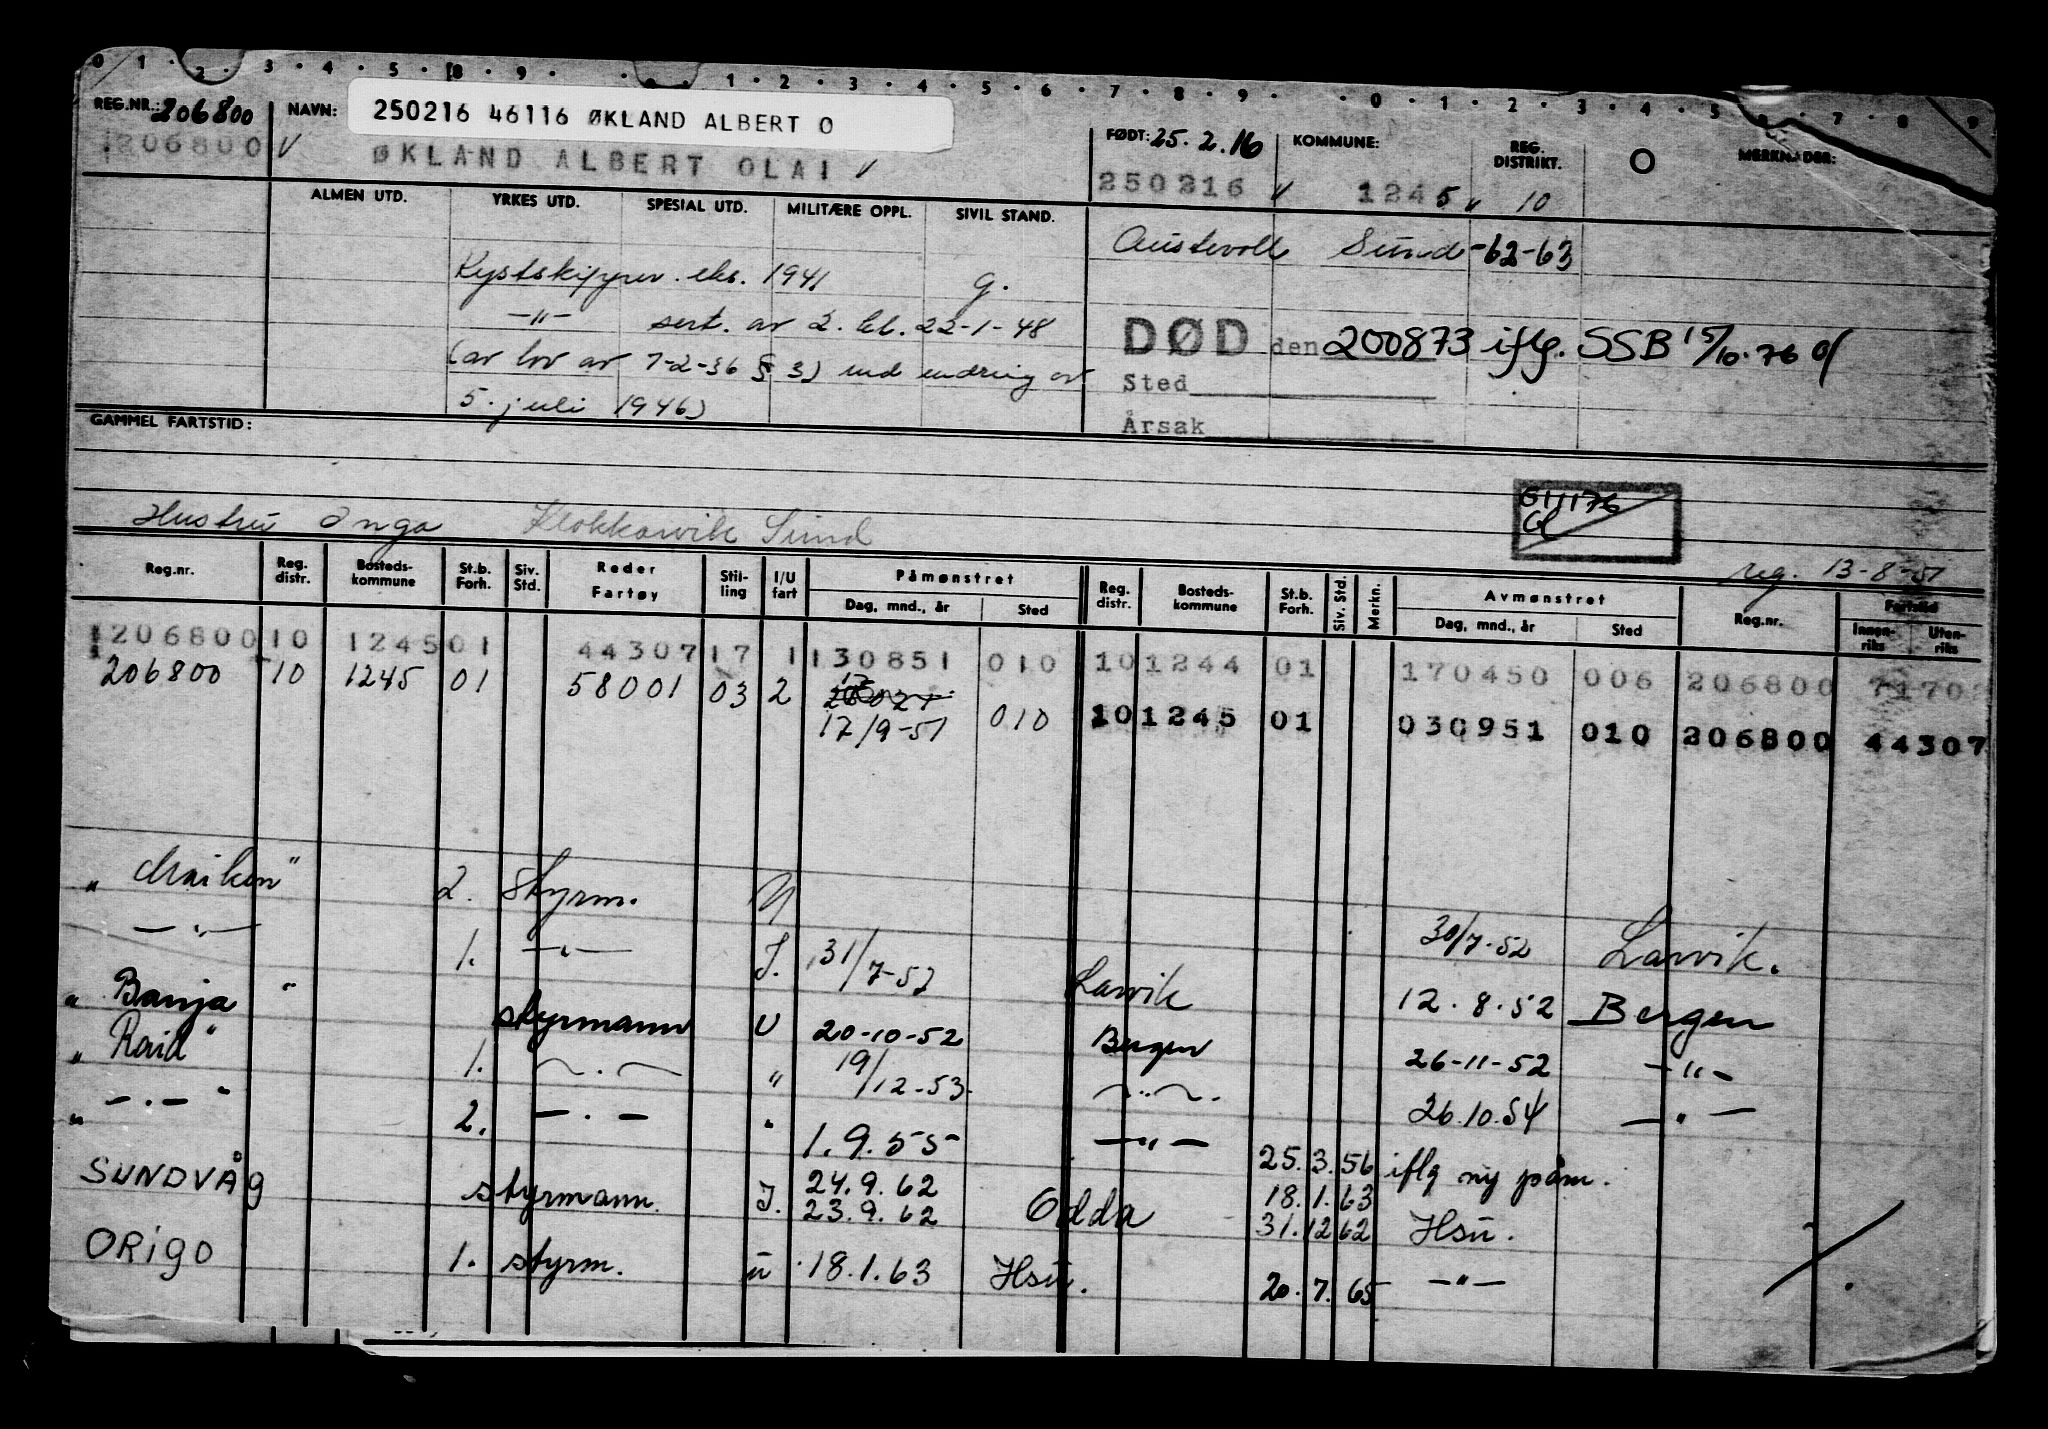 0 1 2 3 4 5 8 9 0 1 2 3 4 5 6 7 8 9 0 1 2 3 4 5 7 8 9
REG.NR.: 206800 NAVN: 250216 46116 ØKLAND ALBERT O FØDT: 25.2.16 KOMMUNE: REG. DISTRIKT. O MERKNADER:
1206800 V ØKLAND ALBERT OLAI V 250216 V 1245 " 10
ALMEN UTD. YRKES UTD. SPESIAL UTD. MILITÆRE OPPL. SIVIL STAND.
Austevoll Sund -62-63
Kystskipper eks. 1941 g.
-"- sert. av 2. kl. 22-1-48
DØD den 200873 iflg. SSB 15/10.76
(av lov av 7-2-36 § 3) med endring av
Sted
5. juli 1946)
Årsak
GAMMEL FARTSTID:
511176
Hustru Inga Klokkarvik Sund
reg. 13-8-51
Reg.nr. Reg. distr. Bosteds-kommune St.b. Forh. Siv. Std. Reder Fartøy Stil-ling I/U fart Påmønstret Dag, mnd., år Sted Reg. distr. Bosteds-kommune St.b. Forh. Siv. Std. Merkn. Avmønstret Dag, mnd., år Sted Reg.nr. Fartstid Innen-riks Uten-riks
1206800 10 1245 01 44307 17 1 130851 010 10 1244 01 170450 006 206800 7170
206800 10 1245 01 58001 03 2 17/9-51 010 10 1245 01 030951 010 206800 44307
"Maiken" 2. Styrm. U 30/7-52 Larvik.
-"- 1. -"- I. 31/7-52 Larvik 12.8.52 Bergen
"Banja" styrmann U 20-10-52 Bergen 26-11-52 -"-
"Raid" 1. -"- " 19/12-53 -"- 26.10.54 -"-
" -"- " 2. -"- " 1.9.55 -"- 25.3.56 iflg ny påm.
SUNDVÅG styrmann I. 24.9.62 18.1.63
23.9.62 Odda 31.12 62 Hsu.
ORIGO 1. styrm. u 18.1.63 Hsu. 20.7.65 -"-